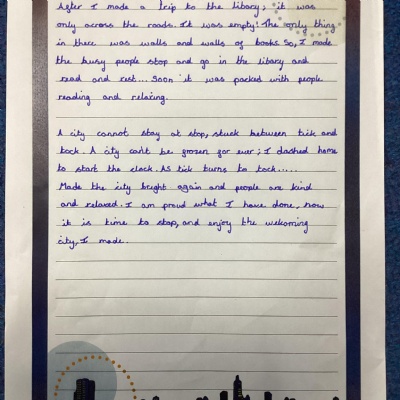 After I made a trip to the libary; it was
only across the roads. It was empty! The only thing
in there was walls and walls of books. So, I made
the busy people stop and go in the libary and
read and rest... Soon it was packed with people
reading and relaxing.
A city cannot stay at stop, stuck between tick and
tock. A city cant be frozen for ever; I dashed home
to start the clock. As tick turns to tock.....
Made the city bright again and people are kind
and relaxed. I am proud what I have done, now
it is time to stop, and enjoy the welcoming
city, I made.